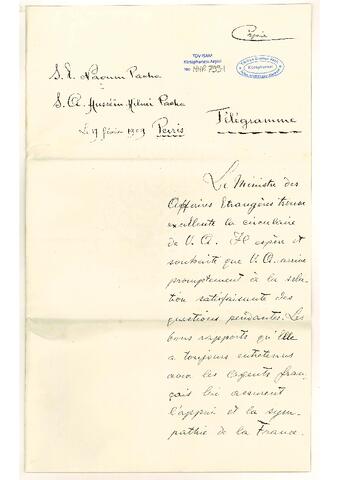 Copie
TDV ISAM
Kütüphanesi Arşivi
No HHP.799-1
S. E. Naoum Pacha
S. A. Husséin Hilmi Pacha
Télégramme
Le 17 février 1909 Paris
Le Ministre des
Affaires Etrangères trouve
excellente la circulaire
de V. A. Il espère et
souhaite que V. A. arrive
promptement à la solu-
tion satisfaisante des
questions pendantes. Les
bons rapports qu'Elle
a toujours entretenus
avec les Agents fran-
çais lui assurent
l'appui et la sym-
pathie de la France.